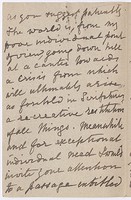 as you suggest patiently
The world is, from my
poor individual point
of view, going down hill
at a canter towards
a crisis from which
will ultimately arise,
as foretold in Scripture,
a re-creative restitution
of all things. Meanwhile
and for exceptional
individual need I would
invite your attention
to a passage entitled